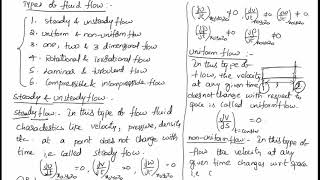 Types of fluid flow :-
1. Steady & unsteady flow
2. uniform & non-uniform flow
3. one, two & 3 dimensional flow
4. Rotational & irrotational flow
5. Laminar & turbulent flow
6. Compressible & incompressible flow
Steady & unsteady flow :-
Steady flow :- In this type of flow fluid
characteristics like velocity, pressure, density
etc.. at a point does not change with
time is called steady flow.
uniform flow :-
In this type of
flow, the velocity
at any given time
does not change with respect to
space is called uniform flow.
non-uniform flow :- In this type of
flow the velocity at any
given time changes w.r.t space